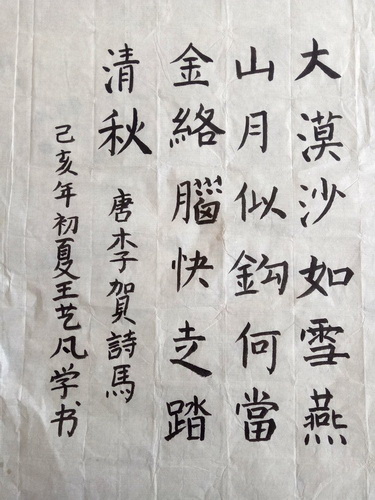 大漠沙如雪燕
山月似鈎何當
金絡腦快走踏
清秋
唐李賀詩馬
己亥年初夏王艺凡学书